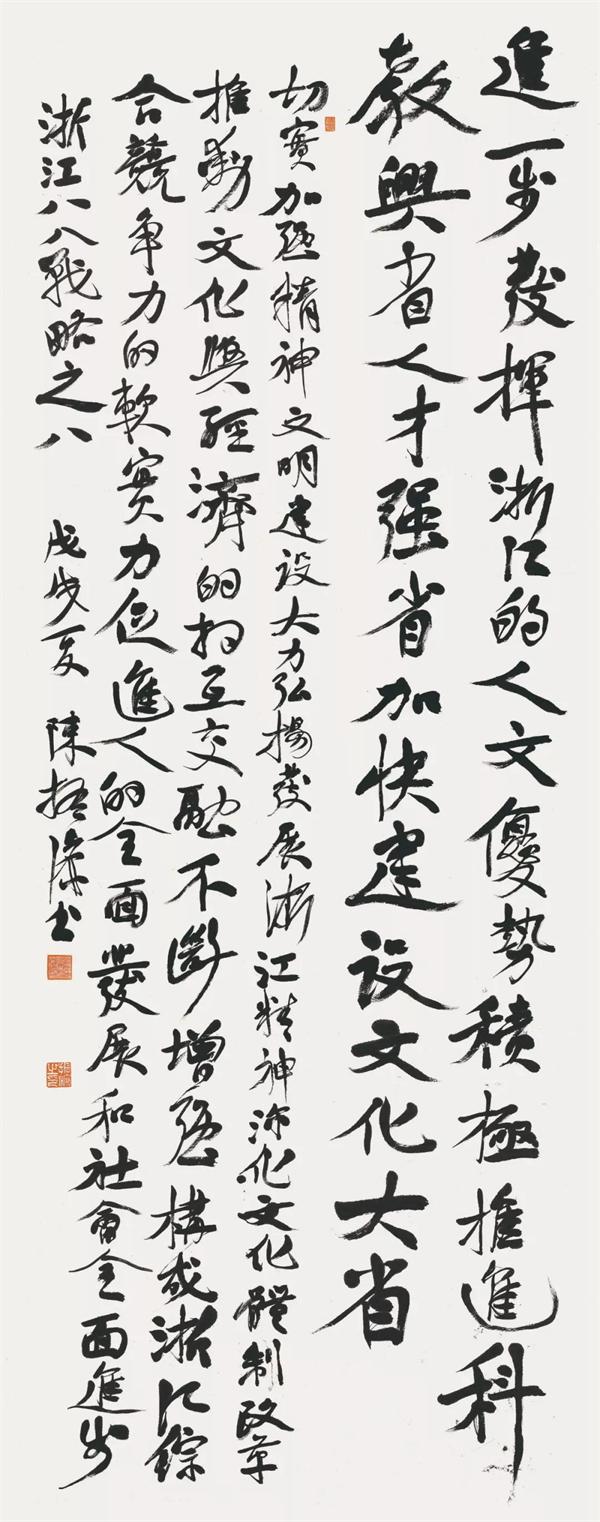 進一步發揮浙江的人文優勢積極推進科
教興省人才强省加快建设文化大省
切實加强精神文明建设大力弘揚發展浙江精神深化文化體制改革
推動文化與經濟的相互交融不斷增强構成浙江綜
合競争力的軟實力促進人的全面發展和社會全面進步
浙江八八戰略之八 戊戌夏 陳振濂書